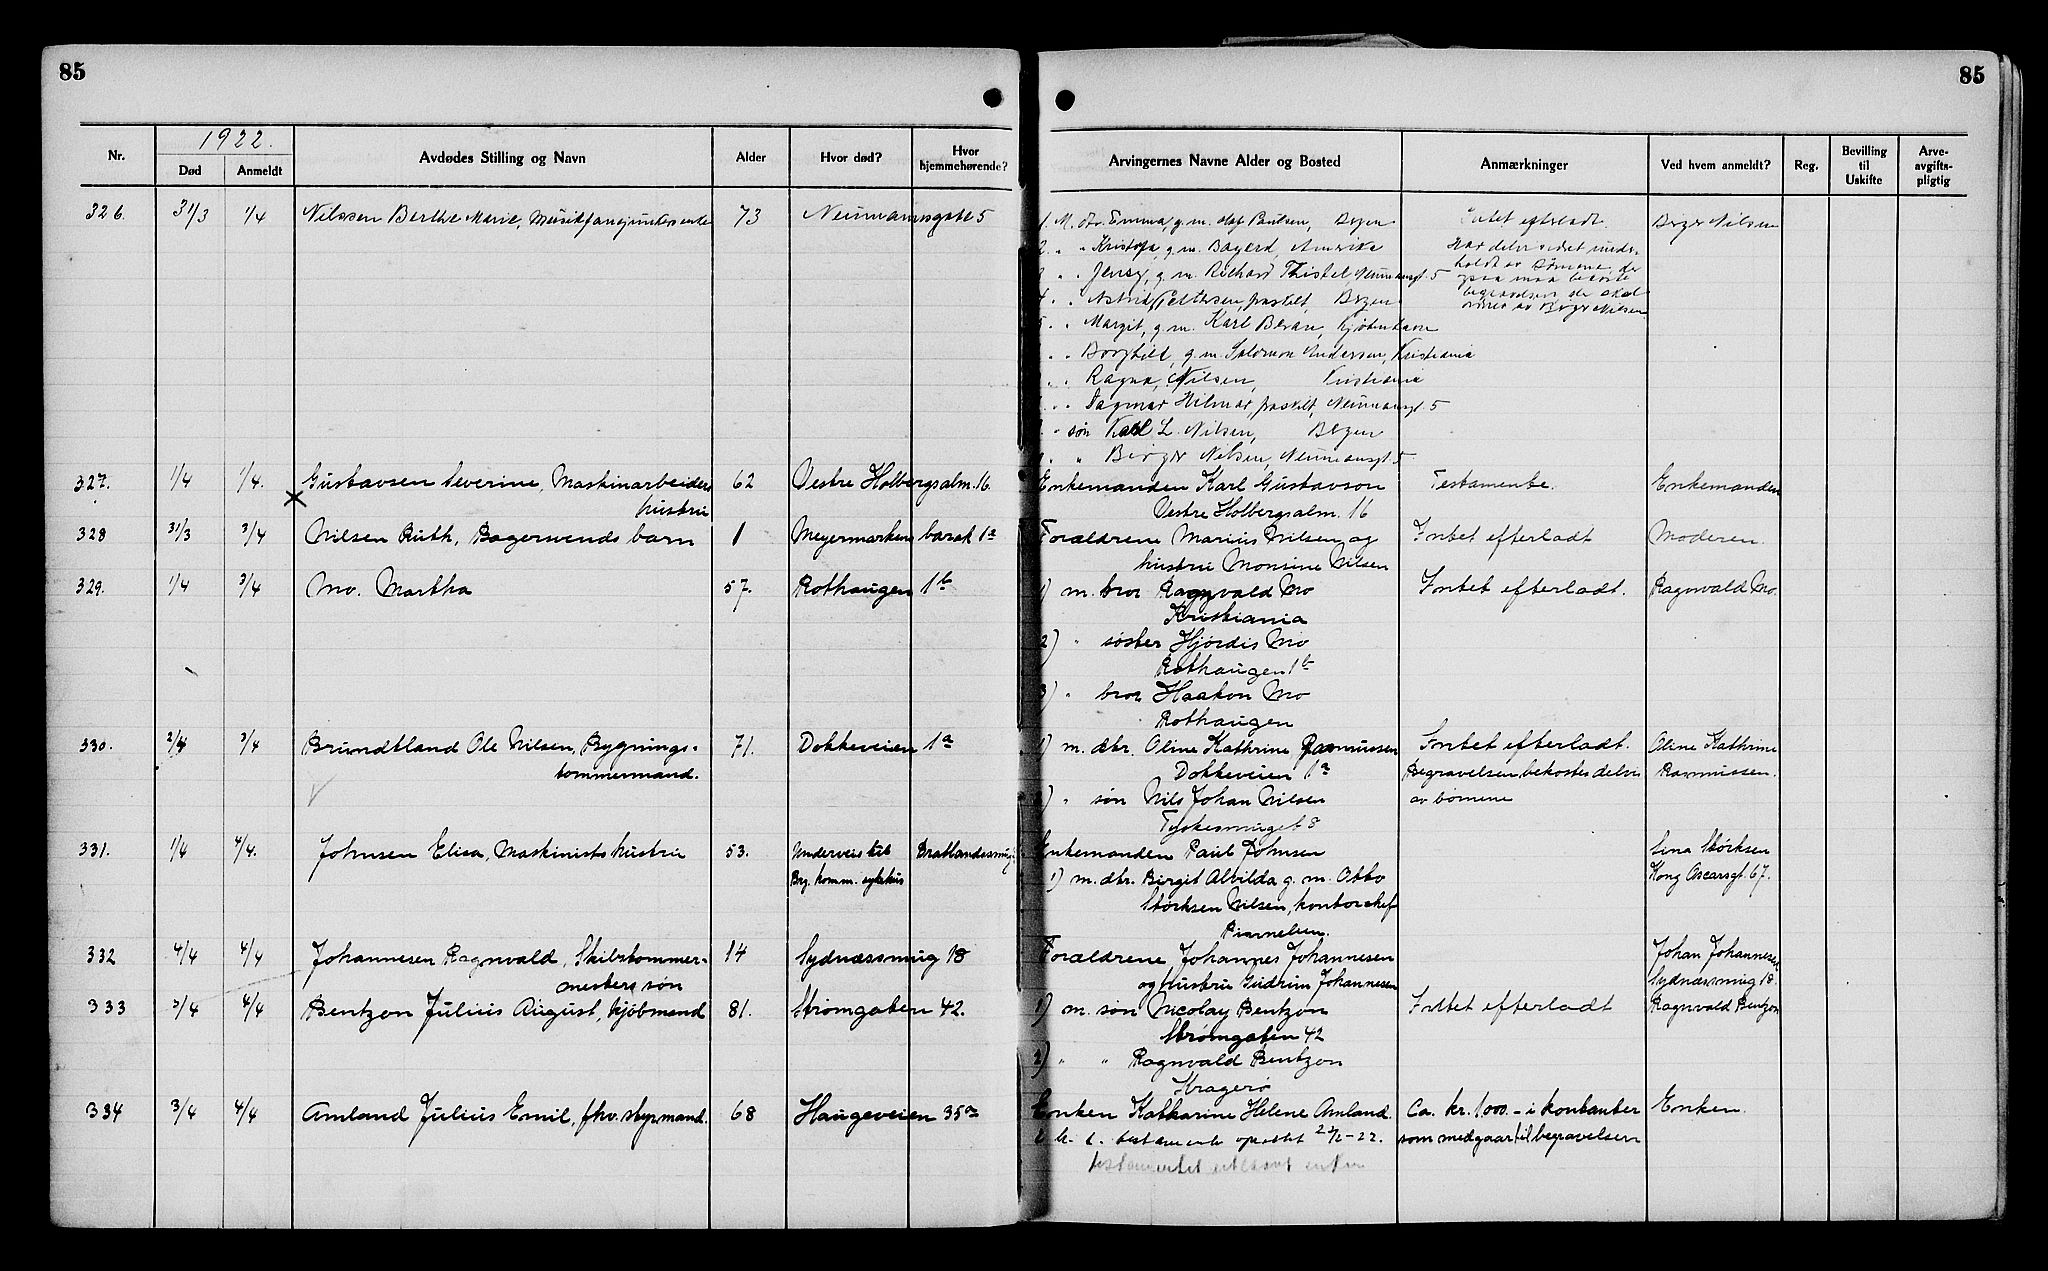 85
85
1922.
Nr.
Død
Anmeldt
Avdødes Stilling og Navn
Alder
Hvor død?
Hvor hjemmehørende?
Arvingernes Navne Alder og Bosted
Anmærkninger
Ved hvem anmeldt?
Reg.
Bevilling til Uskifte
Arve-avgifts-pligtig
326. 31/3 1/4 Nilssen Berthe Marie, 73 Neumannsgate 5
1. M. dtr. Emma, g.m. Olaf Paulsen, Bergen
2. " " Kristofa, g.m. Bayerd, Amerika
" " Jenny, g.m. Richard Thistel, Neumansgt. 5
4. " Astrid Pettersen, fraskilt, Bergen
5. " Margit, g.m. Karl Beran, Kjøbenhavn
" " Borghild, g.m. Salomon Andersen, Kristiania
" " Ragna Nilsen, Kristiania
" " Dagmar Hilmar, fraskilt, Neumansgt. 5
" søn Karl L. Nilsen, Bergen
" " Birger Nilsen, Neumansgt. 5
Intet efterladt.
Har delvis været under-
holdt av børnene, der
ogsaa maa bekoste
begravelsen, der
av Birger Nilsen
Birger Nilsen
327. 1/4 1/4. Gustavsen Severine, Maskinarbeiders 62 Vestre Holbergsalm. 16. Enkemanden Karl Gustavson Testamente. Enkemanden
hustru Vestre Holbergsalm. 16
328 31/3 3/4 Nilsen Ruth, Bagersvends barn 1 Meyermarkens barak 1a Forældrene Marius Nilsen og Intet efterladt Moderen.
hustru Monsine Nilsen
329. 1/4 3/4 Mo. Martha 57. Rothaugen 1b 1) m. bror Ragnvald Mo Intet efterladt. Ragnvald Mo.
Kristiania
2) " søster Hjørdis Mo
Rothaugen 1b
3) " bror Haakon Mo
Rothaugen
330. 2/4 3/4 Brundtland Ole Nilsen, Bygnings- 71. Dokkeveien 1a 1) m. dtr. Oline Kathrine Rasmussen Intet efterladt. Oline Kathrine
tømmermand. Dokkeveien 1a Begravelsen bekostes delvis Rasmussen.
2) " søn Nils Johan Nilsen av børnene
Tyskesmuget 8
331. 1/4 4/4. Johnsen Elisa, Maskinists hustru 53. Underveis til Bratlandssmug Enkemanden Paul Johnsen Lina Størksen
Brg. komm. sykehus 1) m. dtr. Birgit Alvilda g. m. Otto Kong Oscarsgt. 67.
Størksen Nilsen, kontorchef
332 4/4 4/4 Johannesen Ragnvald, Skibstømmer- 14 Sydnæssmug 18 Forældrene Johannes Johannesen Johan Johannesen
mesters søn og hustru Gudrun Johannesen Sydnæssmug 18.
333 3/4 4/4 Bentzon Julius August, kjøbmand 81. Strømgaten 42. 1) m. søn Nicolay Bentzon Intet efterladt Ragnvald Bentzon
Strømgaten 42
2) " " Ragnvald Bentzon
Kragerø
334 3/4 4/4 Amland Julius Emil, fhv. styrmand. 68 Haugeveien 35a Enken Katharine Helene Amland. Ca. kr. 1.000.- i kontanter Enken.
testamente oprettet 22. som medgaar til begravelsen
testamentet utlevert enken